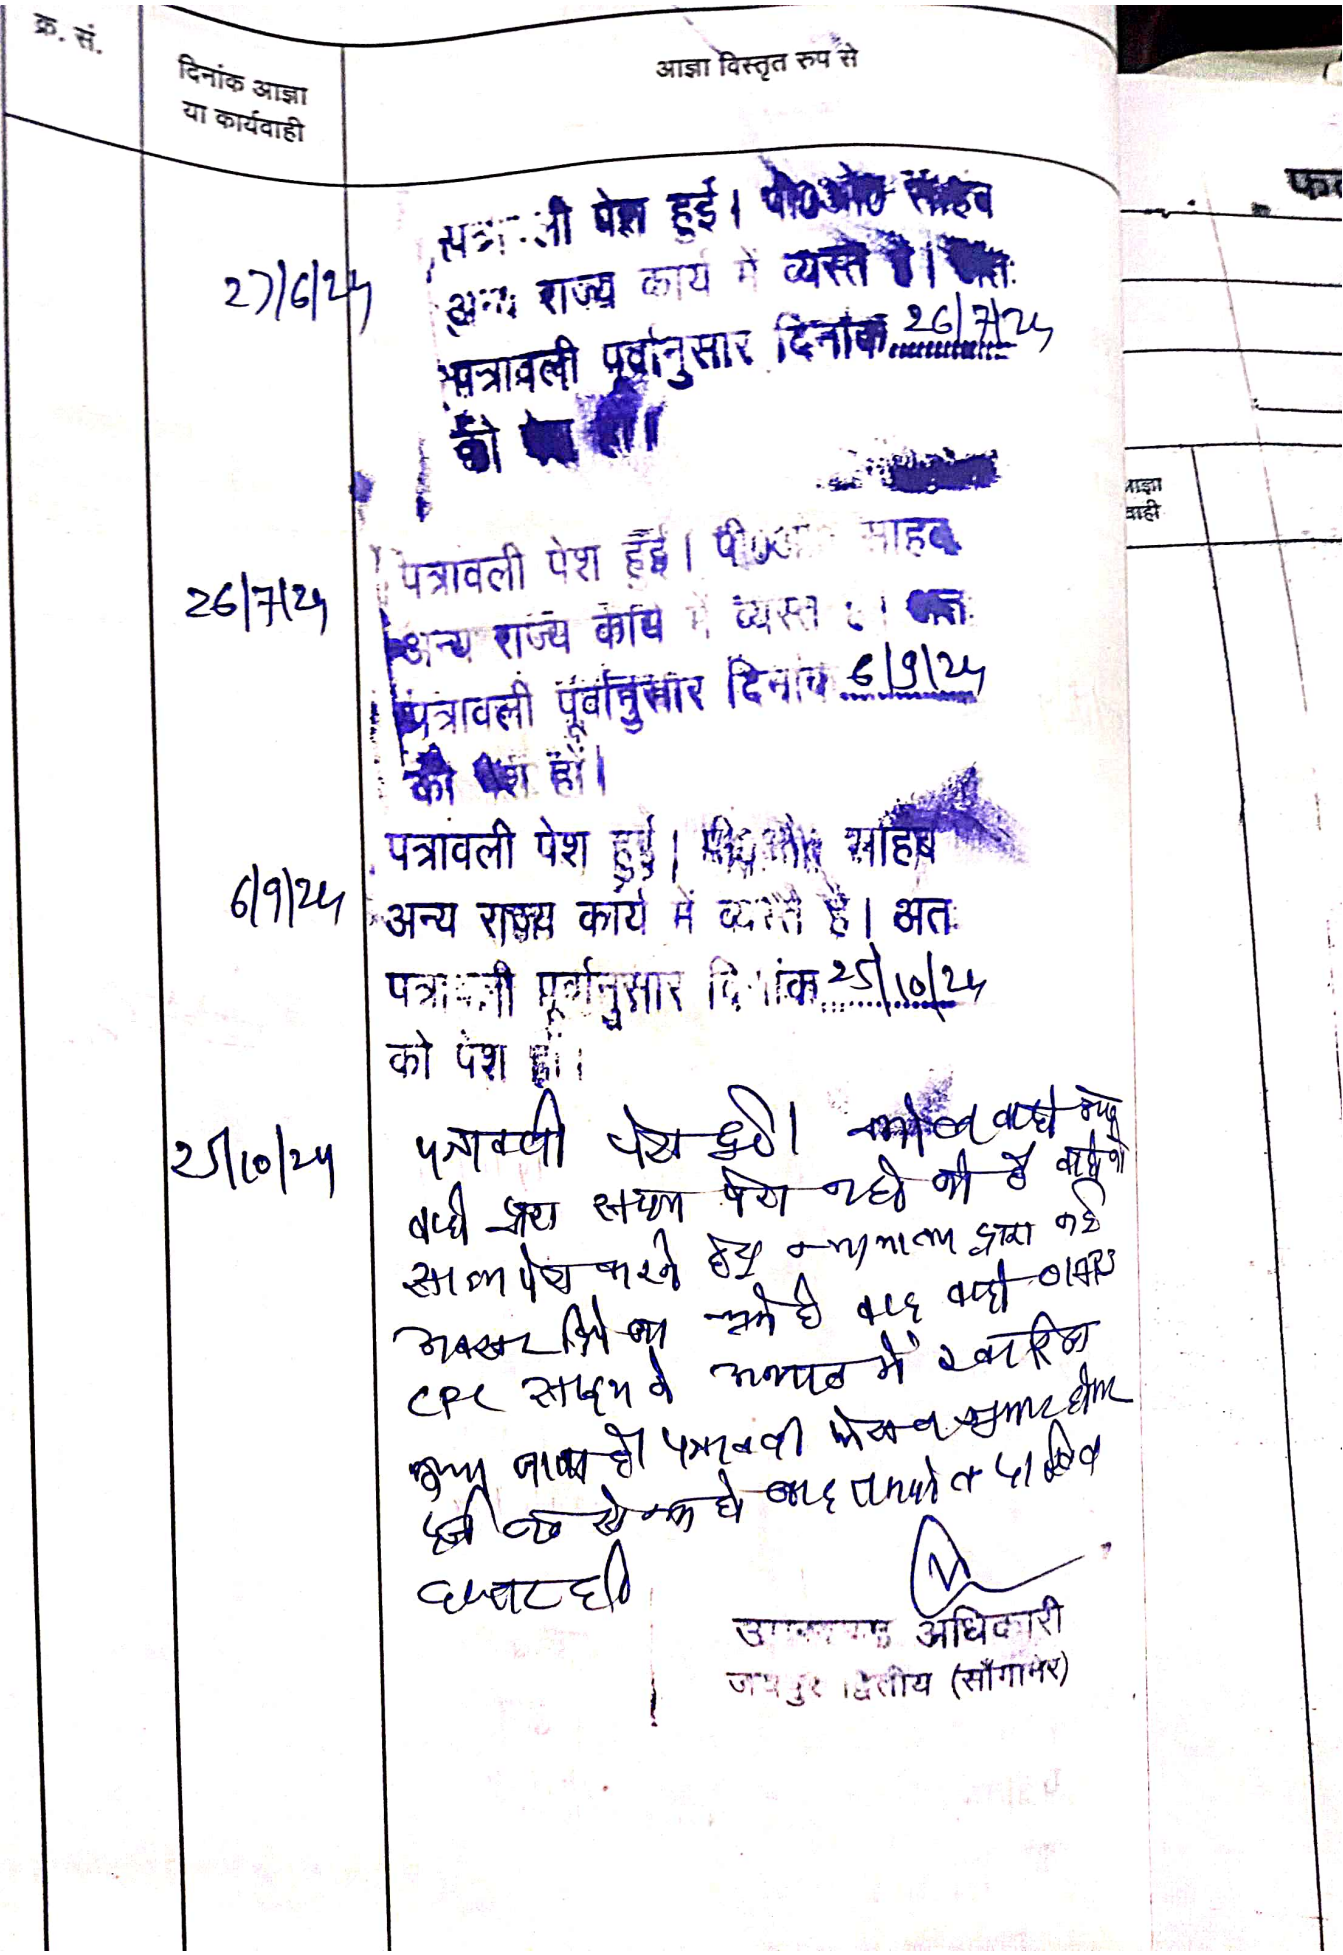 क्र. सं.
दिनांक आज्ञा
या कार्यवाही
आज्ञा विस्तृत रुप से
फ
आज्ञा
वाही
27/6/24
पेश हुई। पी०ओ० साहब
अन्य राज्य कार्य में व्यस्त है। अतः
पत्रावली पूर्वानुसार दिनांक 26/7/24
को
26/7/24
पत्रावली पेश हुई। साहब
अन्य राज्य कार्य में व्यस्त अतः
पत्रावली पूर्वानुसार दिनांक 6/9/24
को पेश हों।
6/9/24
पत्रावली पेश हुई। पी०ओ० साहब
अन्य राज्य कार्य में व्यस्त है। अतः
पत्रावली पूर्वानुसार दिनांक 25/10/24
को पेश हों।
25/10/24
पत्रावली पेश हुई।
वादी द्वारा साक्ष्य पेश नहीं की है
साक्ष्य पेश करने हेतु न्यायालय द्वारा कई
अवसर दिये जा चुके है वाद वादी
CPC साक्ष्य के अभाव में खारिज
किया जाता है। पत्रावली फैसल शुमार होकर
दर्ज नम्बर से कम हो बाद तकमील दाखिल
दफ्तर हो।
उपखण्ड अधिकारी
जयपुर द्वितीय (साँगानेर)